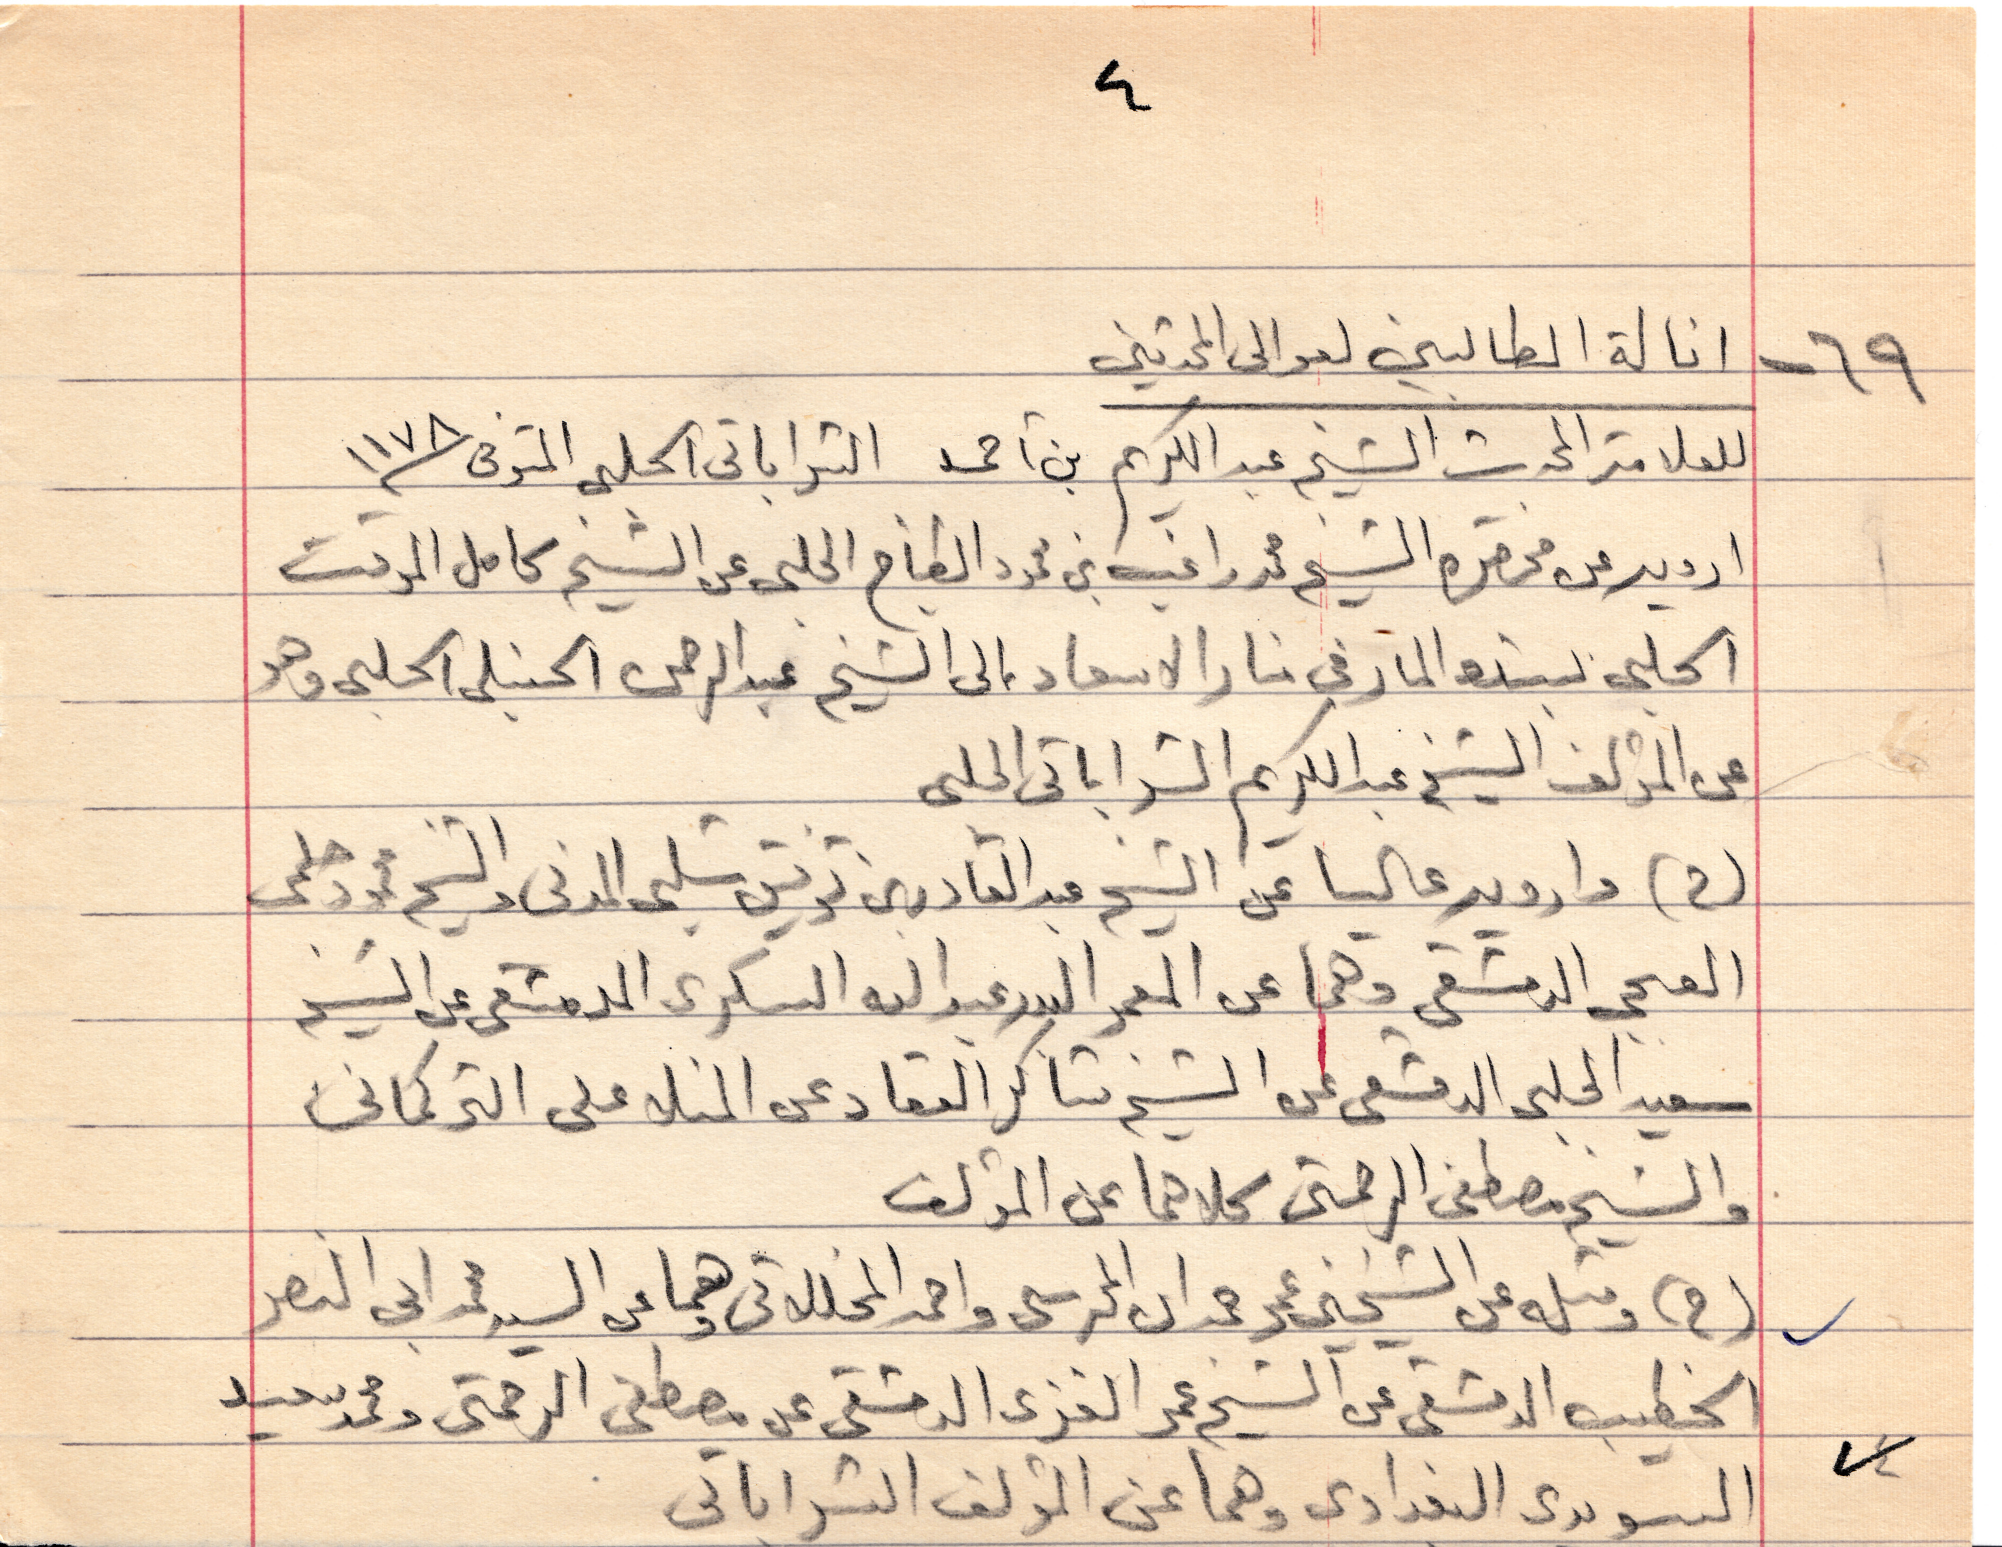 ٤
٦٩- انالة الطالبين لعوالى المحدثين
للعلامة المحدث الشيخ عبد الكريم بن أحمد الشراباتى الحلبى المتوفى ١١٧٨
ارويه عن محمد الشيخ محمد راغب بن محمود الطباخ الحلبى عن الشيخ كامل الموقت
الحلبى بسنده المار فى منار الاسعاد الى الشيخ عبد الرحمن الحنبلى الحلبى وهو
عن المؤلف الشيخ عبد الكريم الشراباتى الحلبى
(ح) وارويه عاليا عن الشيخ عبد القادر بن توفيق شلبى المدنى والشيخ محمود حلمى
العجمى الدمشقى وهما عن المعمر السيد عبد الله السكرى الدمشقى عن الشيخ
سعيد الحلبى الدمشقى عن الشيخ شاكر العقاد عن المنلا على التركمانى
والشيخ مصطفى الرحمتى كلاهما عن المؤلف
(ح) ومثله عن الشيخين عمر حمدان المحرسى واحمد المخللاتى وهما عن السيد محمد ابى النصر
الخطيب الدمشقى عن الشيخ عمر الغزى الدمشقى عن مصطفى الرحمتى ومحمد سعيد
السويدى البغدادى وهما عن المؤلف الشراباتى